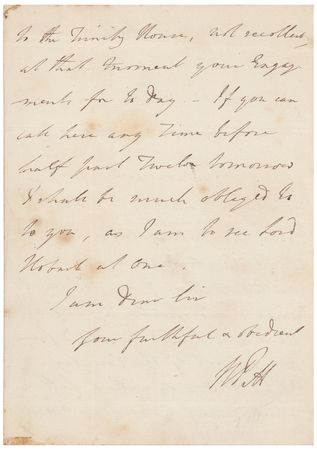 to the Trinity House, not recollect,
at that moment your Engage
ments for to Day. – If you can
call here any time before
half past Twelve tomorrow
I shall be much obliged to
to you, as I am to see Lord
Hobart at one.
I am Dear Sir
your faithful & obedient
W Pitt